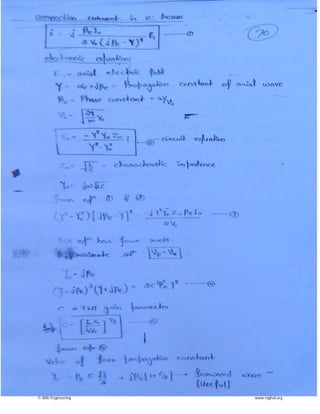 convection current in e⁻ beam
i = j βe I₀ / 2V₀ (jβe - γ)² E₁ —①
70
electronic equation
E₁ = axial electric field
γ = αe + jβe = Propagation constant of axial wave
βe = Phase constant = ω/v₀
v₀ = √(2q/m V₀)
E₁ = - γ² γ₀ Z₀ / γ² - γ₀² i —② circuit equation
Z₀ = √(L/C) = characteristic impedence
γ₀ = jω√LC
from eqⁿ ① & ②
(γ² - γ₀²) [jβe - γ]² = j γ² γ₀ Z₀ βe I₀ / 2V₀ —③
eqⁿ has four roots
Approximate at Vp = V₀
γ₀ = jβe
(γ - jβe)³ (γ + jβe) = 2c³ βe² γ² —④
c = TWT gain parameter
c = [I₀ Z₀ / 4V₀]^1/3 —⑤
from eqⁿ ④
Value of four propagation constant
γ₁ = -βe c √3/2 + jβe [1 + c/2] → forward wave
[Useful]
© Wiki Engineering
www.raghul.org